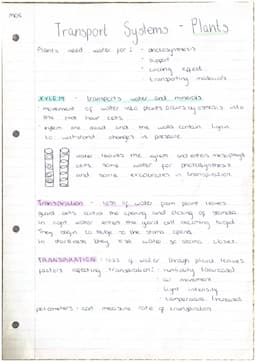 Transport Systems - Plants
Plants need water for: · photosynthesis
· support
· cooling effect
· transporting materials
XYLEM - transports water and minerals
· movement of water into plants occurs by osmosis into
the root hair cells
· xylem are dead and the walls contain lignin
to withstand changes in pressure
water leaves the xylem and enters mesophyll
cells. Some water for photosynthesis
and some evaporates in transpiration
Transpiration - loss of water from plant leaves
guard cells control the opening and closing of stomata
in light water enters the guard cell becoming turgid
They begin to bulge so the stoma opens
in darkness they lose water so stoma closes.
TRANSPIRATION - loss of water through plant leaves
factors affecting transpiration: · humidity
· air movement
· light intensity
· temperature increased
potometers - can measure rate of transpiration